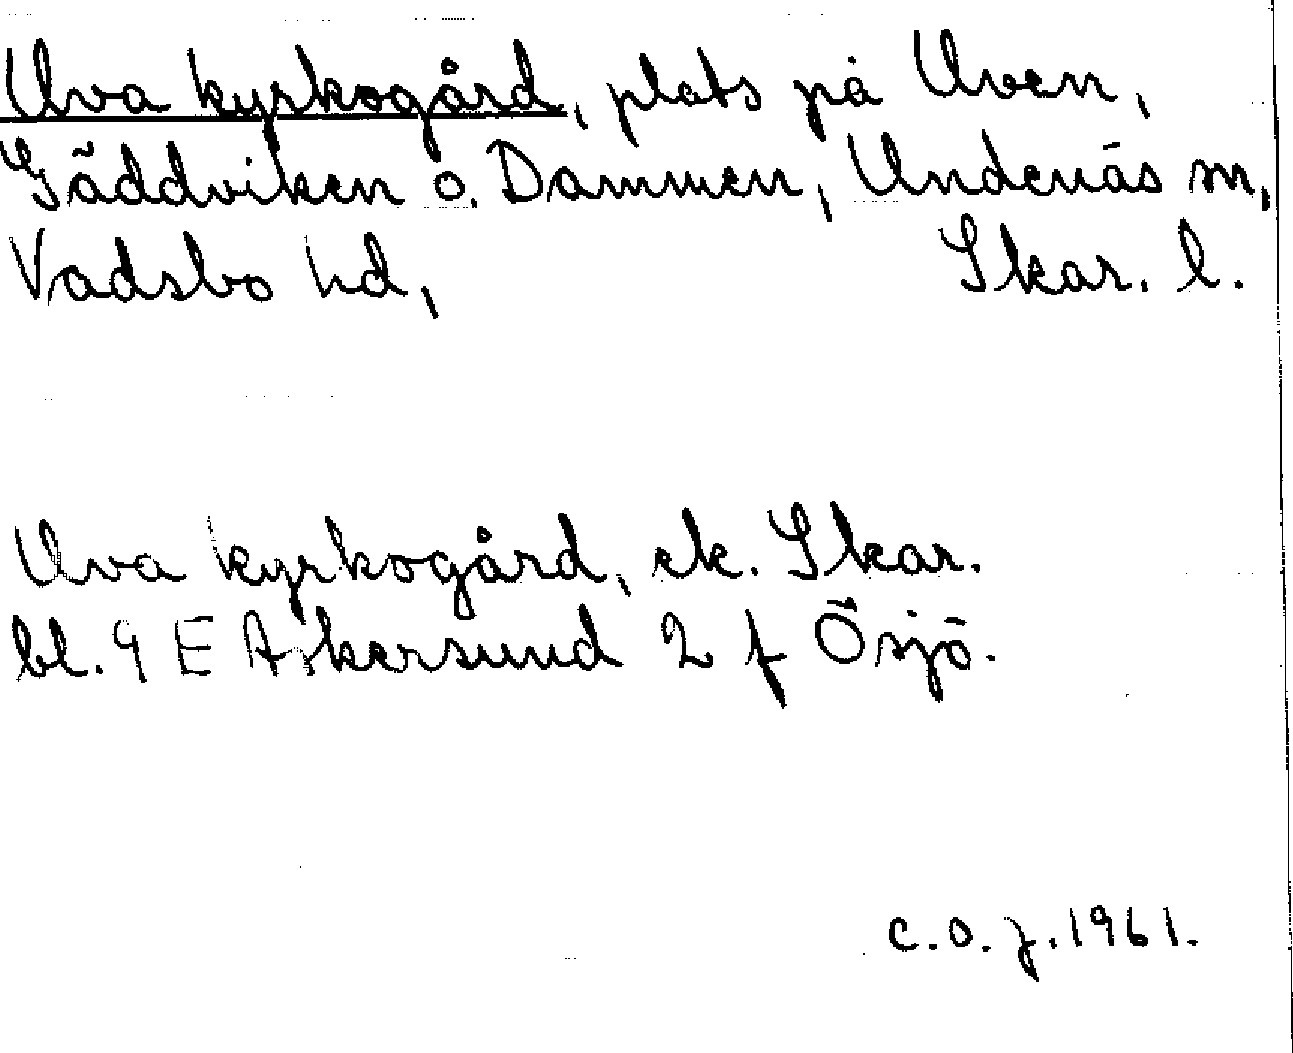 Uva kyrkogård, plats på Uven,
Gäddviken o. Dammen, Undenäs sn,
Vadsbo hd, Skar. l.
Uva kyrkogård, ek. Skar.
bl. 9 E Askersund 2 f Ösjö.
C.O.J. 1961.